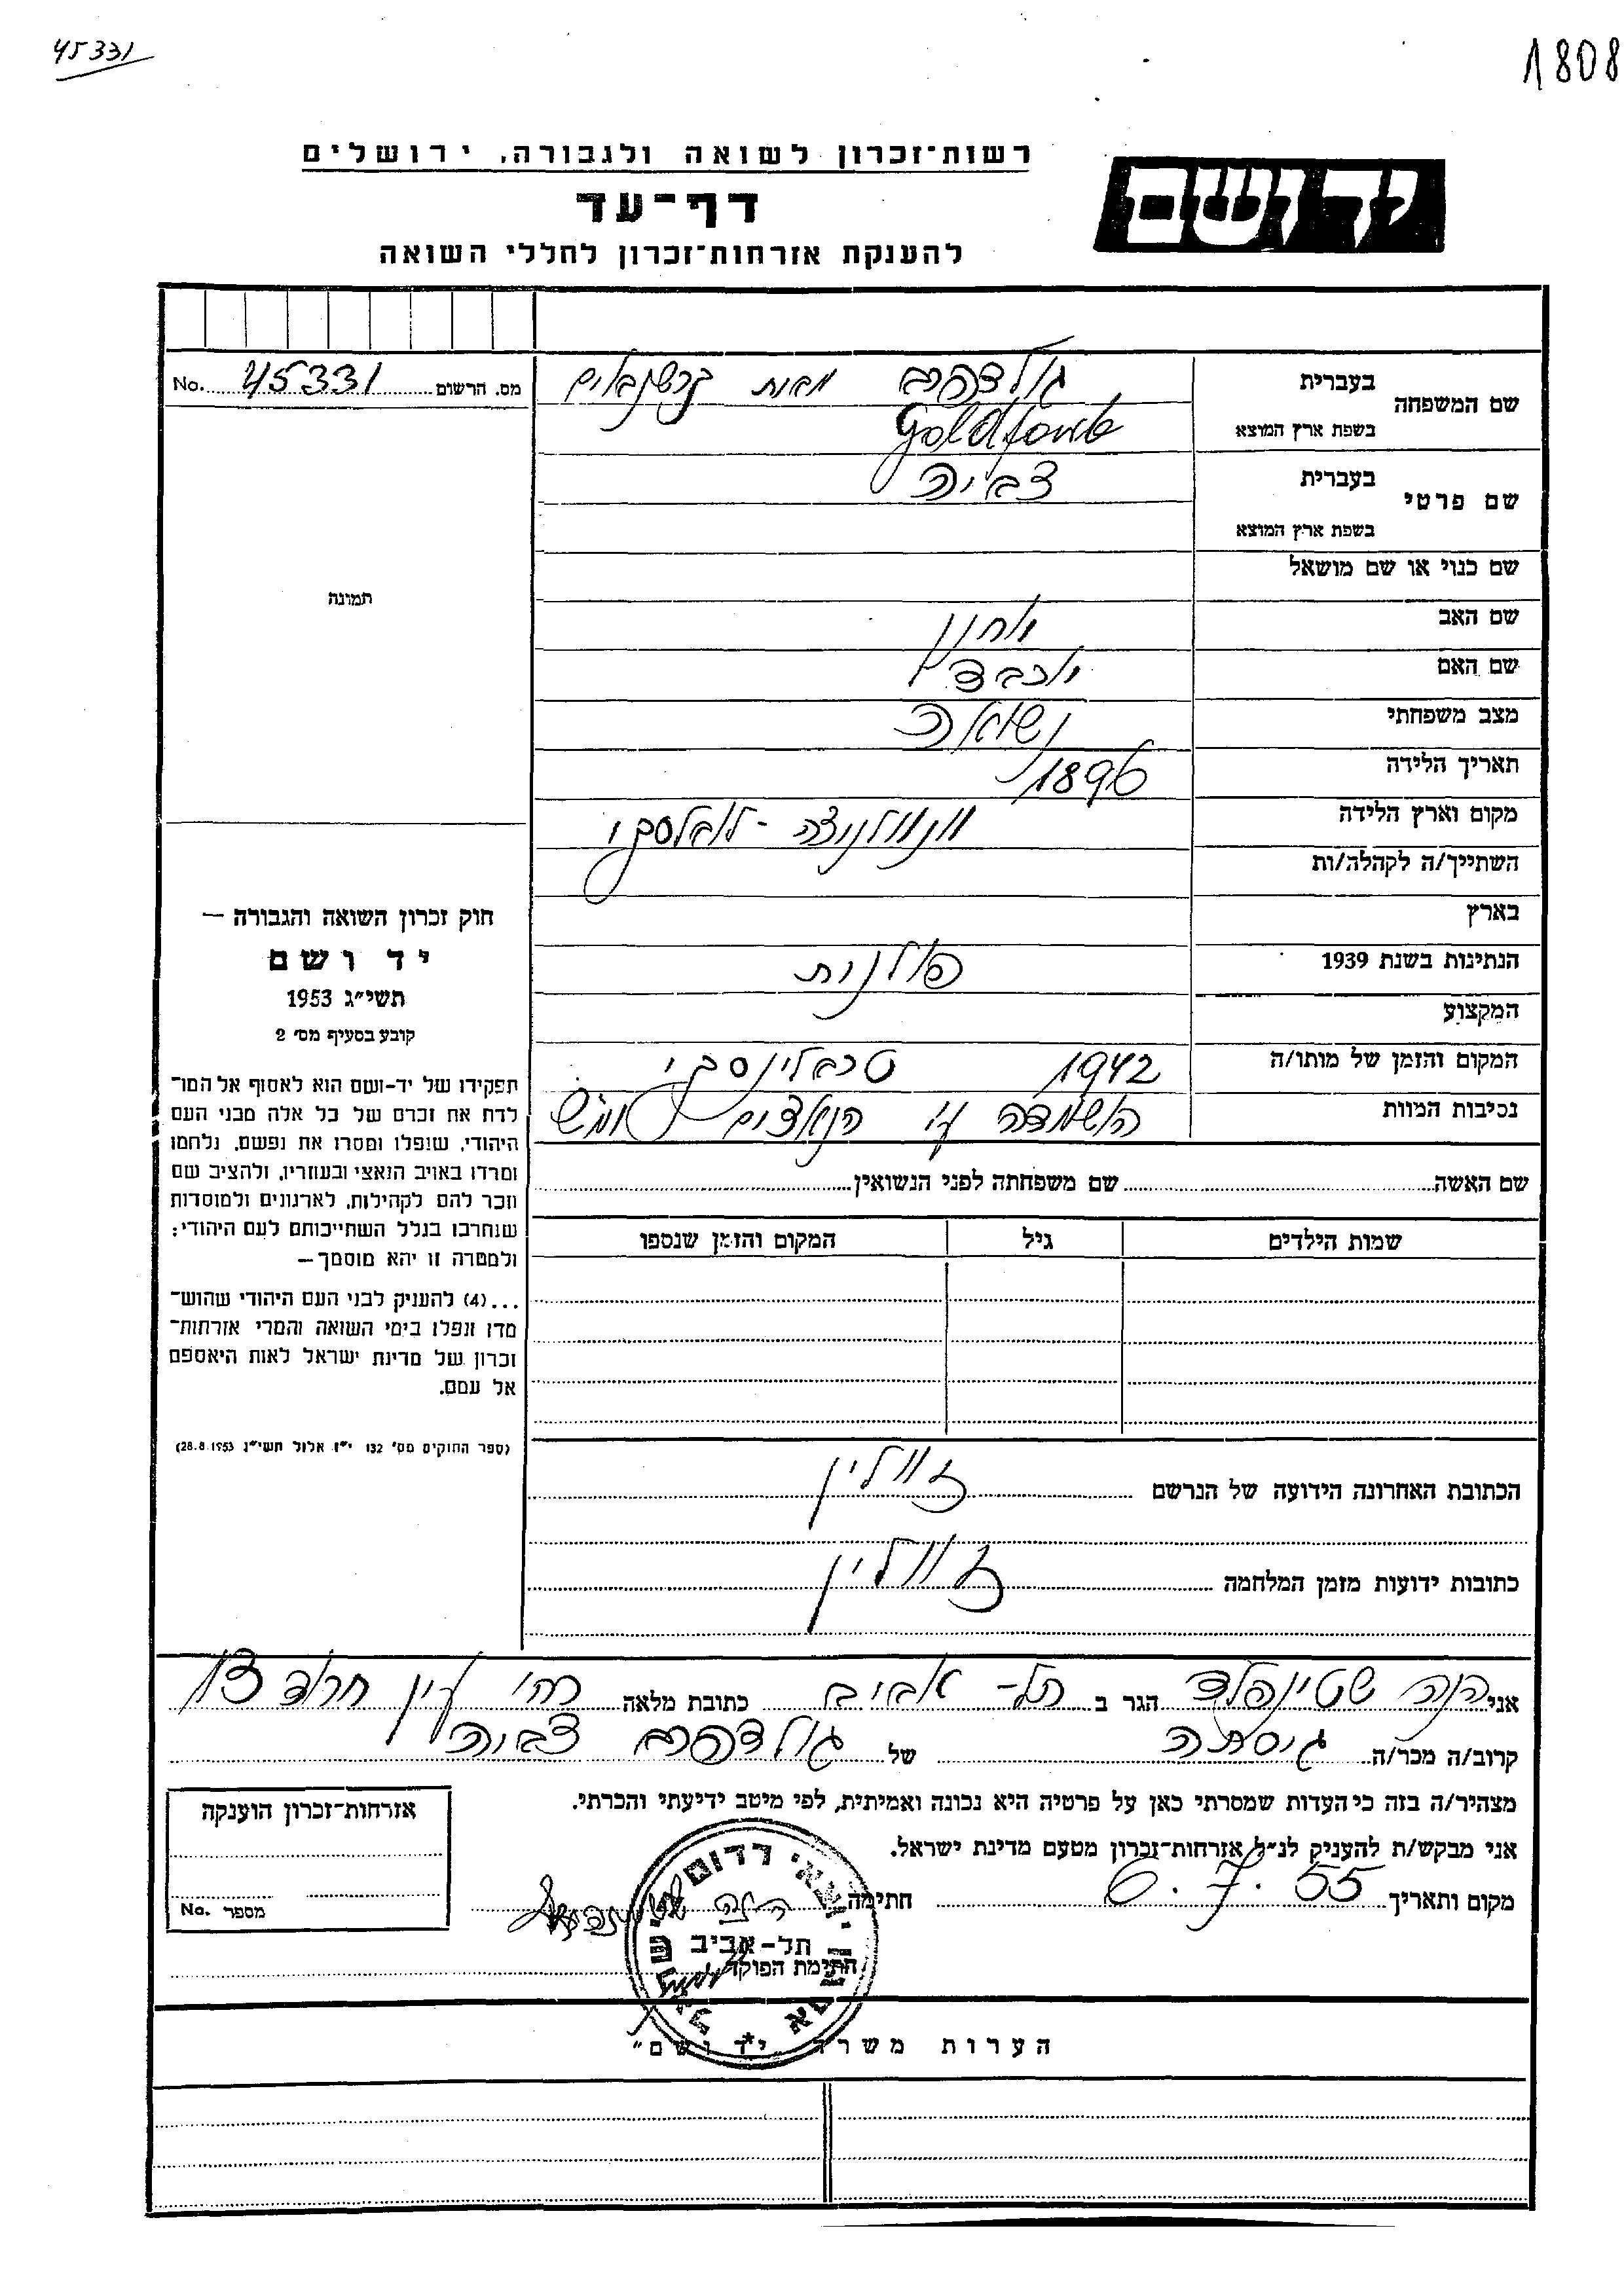 45331
1808
רשות־זכרון לשואה ולגבורה, ירושלים
יד ושם
דף־עד
להענקת אזרחות־זכרון לחללי השואה
מס. הרשום 45331 No.
שם המשפחה
בעברית גולדפרב מבית
בשפת ארץ המוצא Goldfarb
שם פרטי
בעברית צביה
בשפת ארץ המוצא
שם כנוי או שם מושאל
שם האב
שם האם יוכבד
מצב משפחתי נשואה
תאריך הלידה 1896
מקום וארץ הלידה
השתייך/ה לקהלה/ות
בארץ
הנתינות בשנת 1939 פולנית
המקצוע
המקום והזמן של מותו/ה 1942
נסיבות המוות הושמדה ע"י הנאצים
תמונה
חוק זכרון השואה והגבורה —
יד ושם
תשי״ג 1953
קובע בסעיף מס׳ 2
תפקידו של יד־ושם הוא לאסוף אל המו־
לדת את זכרם של כל אלה מבני העם
היהודי, שנפלו ומסרו את נפשם, נלחמו
ומרדו באויב הנאצי ובעוזריו, ולהציב שם
וזכר להם לקהילות, לארגונים ולמוסדות
שנחרבו בגלל השתייכותם לעם היהודי;
ולמטרה זו יהא מוסמך—
...(4) להעניק לבני העם היהודי שהוש־
מדו ונפלו בימי השואה והמרי אזרחות־
זכרון של מדינת ישראל לאות היאספם
אל עמם.
(ספר החוקים מס׳ 132 י״ז אלול תשי״ג 28.8.1953)
שם האשה שם משפחתה לפני הנשואין
שמות הילדים גיל המקום והזמן שנספו
הכתובת האחרונה הידועה של הנרשם זוולין
כתובות ידועות מזמן המלחמה זוולין
אני חנה שטיינפלד הגר ב תל-אביב כתובת מלאה רח' עין חרוד 13
קרוב/ה מכר/ה גיסתה של גולדפרב צביה
מצהיר/ה בזה כי העדות שמסרתי כאן על פרטיה היא נכונה ואמיתית, לפי מיטב ידיעתי והכרתי.
אני מבקש/ת להעניק לנ״ל אזרחות־זכרון מטעם מדינת ישראל.
מקום ותאריך 6.7.55 חתימה
חתימת הפוקד
יוצאי רדום
תל-אביב
אזרחות־זכרון הוענקה
מספר No.
הערות משרד „יד ושם"